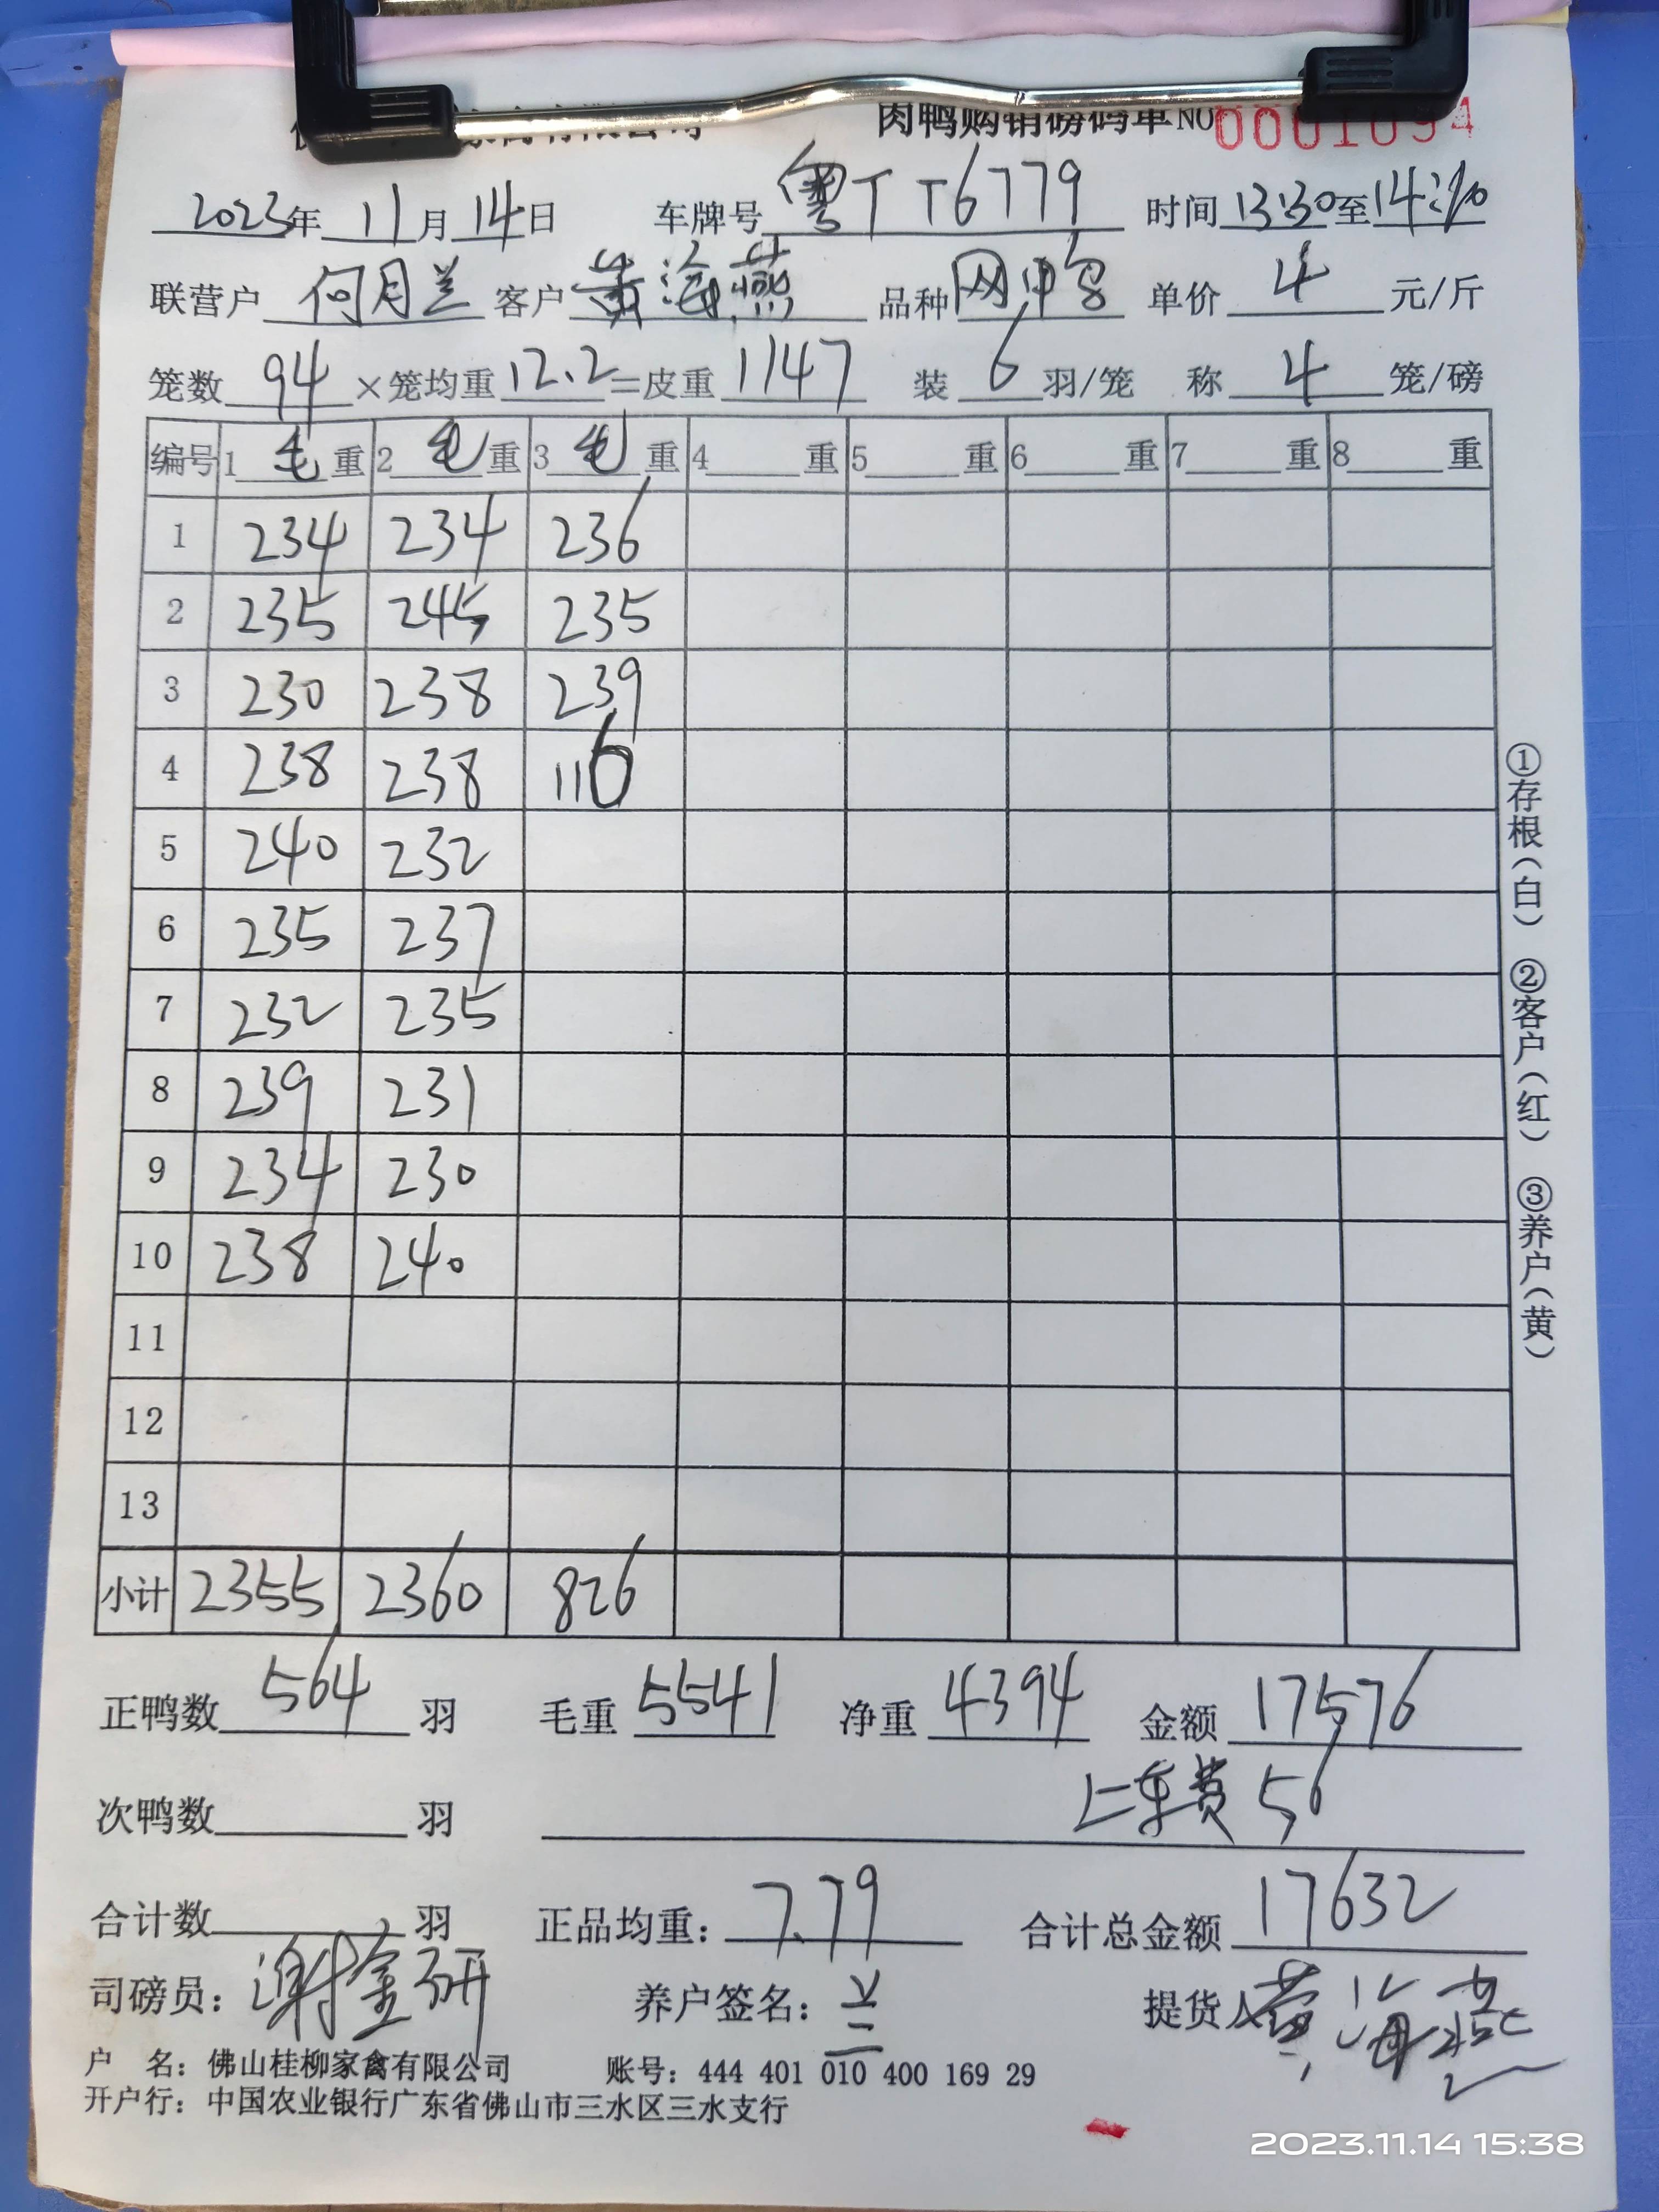 肉鸭购销磅码单NO 0001094
2023年 11月 14日 车牌号 粤T T6779 时间 13:30至14:20
联营户 何月兰 客户 黄海燕 品种 网鸭 单价 4 元/斤
笼数 94 ×笼均重 12.2 =皮重 1147 装 6 羽/笼 称 4 笼/磅
编号 1 毛 重 2 毛 重 3 毛 重 4 重 5 重 6 重 7 重 8 重
1 234 234 236
2 235 245 235
3 230 238 239
4 238 238 116
5 240 232
6 235 237
7 232 235
8 239 231
9 234 230
10 238 240
11
12
13
小计 2355 2360 826
正鸭数 564 羽 毛重 5541 净重 4394 金额 17576
上车费 56
次鸭数 羽
合计数 羽 正品均重: 7.79 合计总金额 17632
司磅员: 谢金研 养户签名: 兰 提货人 黄海燕
户 名: 佛山桂柳家禽有限公司 账号: 444 401 010 400 169 29
开户行: 中国农业银行广东省佛山市三水区三水支行
①存根(白) ②客户(红) ③养户(黄)
2023.11.14 15:38